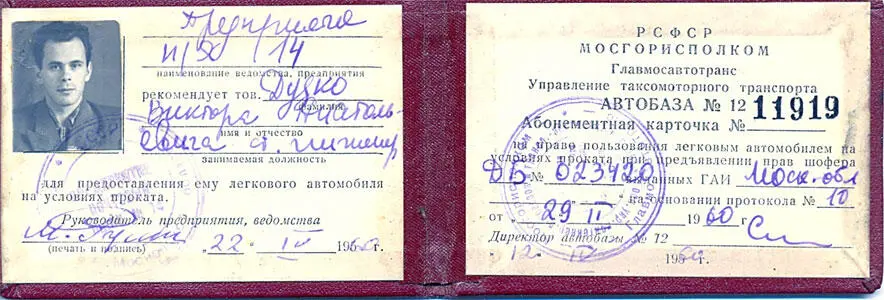 Предприятие
п/я 14
наименование ведомства, предприятия
рекомендует тов. Дудко
фамилия
Виктора Анатоль-
имя и отчество
евича ст. инженер
занимаемая должность
для предоставления ему легкового автомобиля
на условиях проката.
Руководитель предприятия, ведомства
(печать и подпись) 22 IV 195 г.
РСФСР
МОСГОРИСПОЛКОМ
Главмосавтотранс
Управление таксомоторного транспорта
АВТОБАЗА № 12
11919
Абонементная карточка №
на право пользования легковым автомобилем на
условиях проката при предъявлении прав шофера
ДБ № 023420 выданных ГАИ Моск. обл
на основании протокола № 10
от 29 II 1960 г.
Директор автобазы № 12
12 IV 195 г.